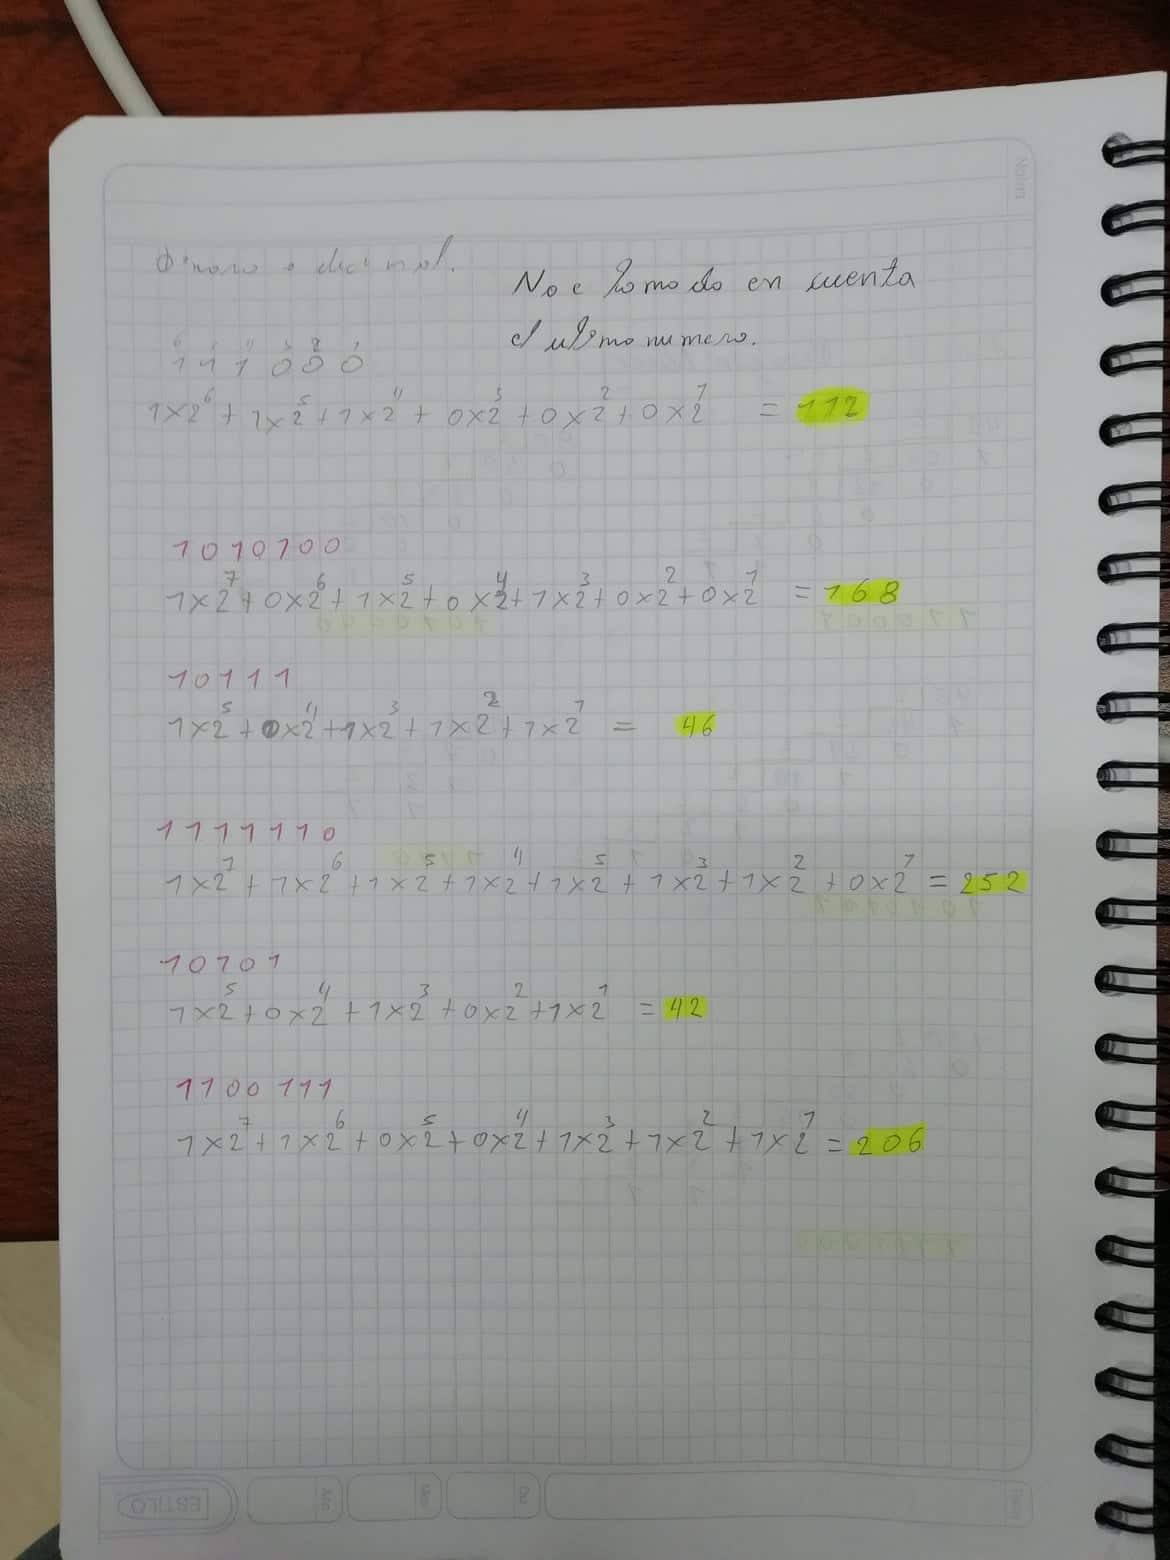 Binario a decimal.
No e tomado en cuenta
el ultimo numero.
6 5 4 3 2 1
1 1 1 0 0 0
1x2⁶ + 1x2⁵ + 1x2⁴ + 0x2³ + 0x2² + 0x2¹ = 112
1010100
1x2⁷ + 0x2⁶ + 1x2⁵ + 0x2⁴ + 1x2³ + 0x2² + 0x2¹ = 168
10111
1x2⁵ + 0x2⁴ + 1x2³ + 1x2² + 1x2¹ = 46
1111110
1x2⁷ + 1x2⁶ + 1x2⁵ + 1x2⁴ + 1x2⁵ + 1x2³ + 1x2² + 0x2¹ = 252
10101
1x2⁵ + 0x2⁴ + 1x2³ + 0x2² + 1x2¹ = 42
1100111
1x2⁷ + 1x2⁶ + 0x2⁵ + 0x2⁴ + 1x2³ + 1x2² + 1x2¹ = 206
ESTILO